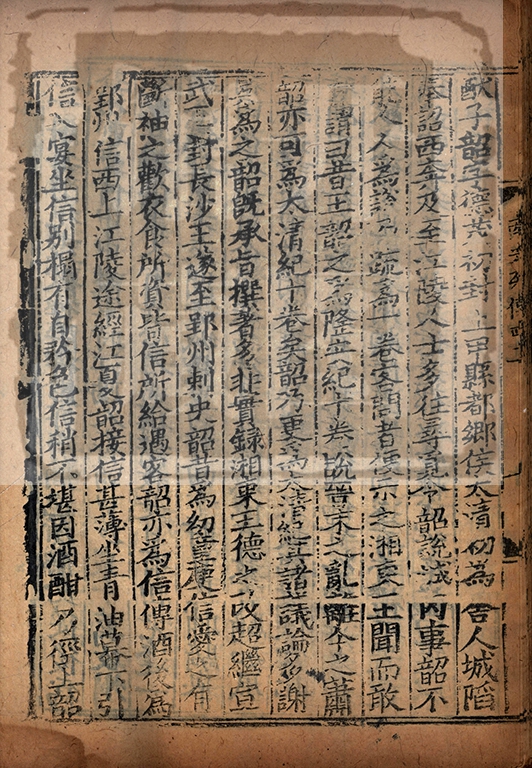 猷子韶字德茂初封上甲縣都鄉侯太清初為舍人城陷
奉詔西奔及至江陵人士多往尋覓令韶說城內事韶不
能人人為說乃疏為一卷客問者便示之湘東王聞而取
看謂曰昔王韶之為隆安紀十卷說晉末之亂離今之蕭
韶亦可為太清紀十卷矣韶乃更為太清紀其諸議論多謝
吳為之韶既承旨撰著多非實錄湘東王德之改超繼宣
武王封長沙王遂至郢州刺史韶昔為幼童庾信愛之有
斷袖之歡衣食所資皆信所給遇客韶亦為信傳酒後為
郢州信西上江陵途經江夏韶接信甚薄坐青油幕下引
信入宴坐信別榻有自矜色信稍不堪因酒酣乃徑上韶